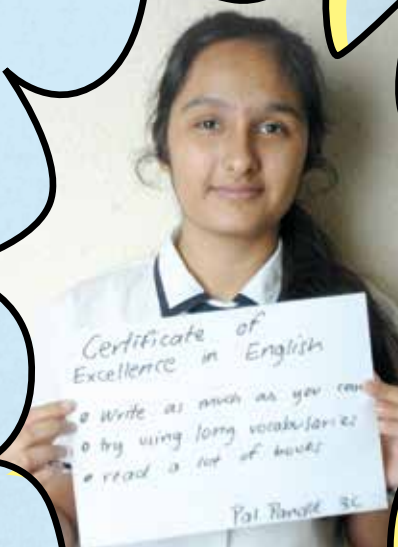 Certificate of
Excellence in English
• Write as much as you can
• try using long vocabularies
• read a lot of books
Pal 3C